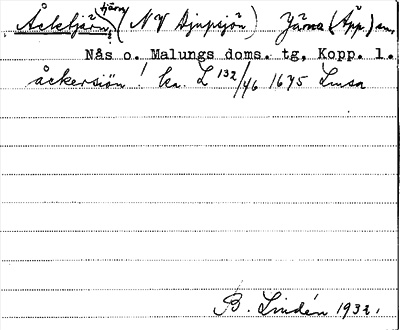 Åsktjärn, tjärn (NV Djupsjön) Järna (Äpp.) sn,
Nås o. Malungs doms. tg, Kopp. l.
åckersiön ! ka. L 132/46 1645 Lmsa
B. Lindén 1932.